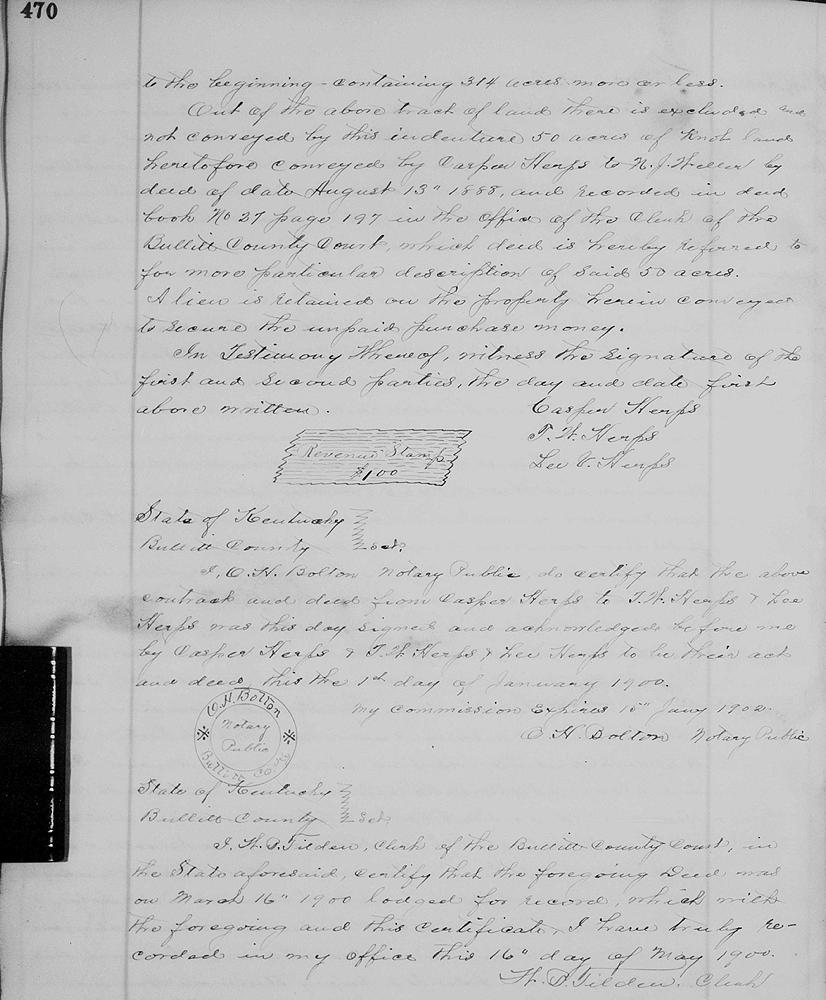 470
to the beginning - containing 314 acres more or less.
Out of the above tract of land there is excluded and
not conveyed by this indenture 50 acres of Knob land
heretofore conveyed by Casper Herps to N. J. Weller by
deed of date August 13" 1888, and recorded in deed
book No 27 page 197 in the office of the Clerk of the
Bullitt County Court, which deed is hereby referred to
for more particular description of said 50 acres.
A lien is retained on the property herein conveyed
to secure the unpaid purchase money.
In Testimony Whereof, witness the signature of the
first and second parties, the day and date first
above written.
Casper Herps
T. W. Herps
Lee V. Herps
Revenue Stamp
$1.00
State of Kentucky
Bullitt County Sct.
I, O. H. Bolton Notary Public, do certify that the above
contract and deed from Casper Herps to T. W. Herps & Lee
Herps was this day signed and acknowledged before me
by Casper Herps & T. W. Herps & Lee Herps to be their act
and deed, this the 1st day of January 1900.
My Commission Expires 15" Jany 1902.
O. H. Bolton Notary Public
O. H. Bolton
Notary
Public
Bullitt Co
State of Kentucky
Bullitt County Sct.
I, W. P. Tilden, Clerk of the Bullitt County Court, in
the State aforesaid, certify that the foregoing Deed was
on March 16" 1900 lodged for record, which with
the foregoing and this certificate, I have truly re-
corded in my office this 16" day of May 1900.
Clerk